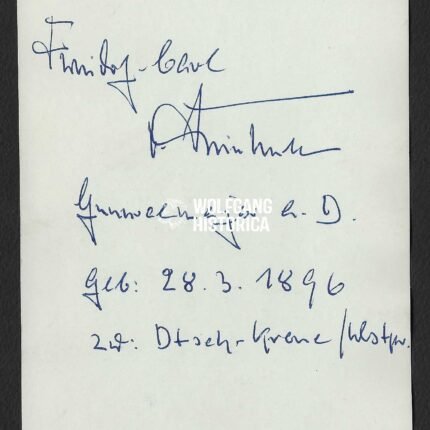 Friedrich-Carl
v. Steinkeller
Generalmajor a. D.
WOLFGANG
HISTORICA
geb: 28.3.1896
zu: Dtsch-Krone/Westpr.